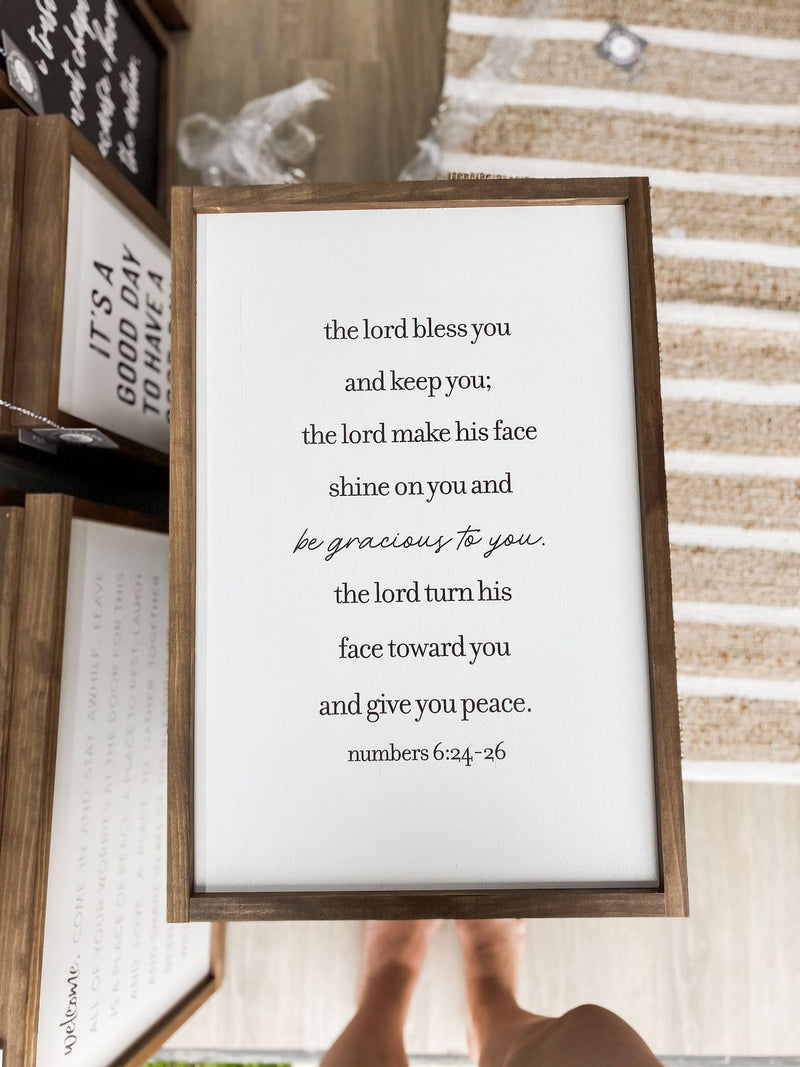 the lord bless you
and keep you;
the lord make his face
shine on you and
be gracious to you.
the lord turn his
face toward you
and give you peace.
numbers 6:24-26
IT'S A
GOOD DAY
TO HAVE A
welcome. COME IN AND STAY AWHILE. LEAVE
ALL OF YOUR WORRIES AT THE DOOR FOR THIS
IS A PLACE OF PEACE, A PLACE TO REST, LAUGH
AND LOVE. A PLACE TO GATHER TOGETHER